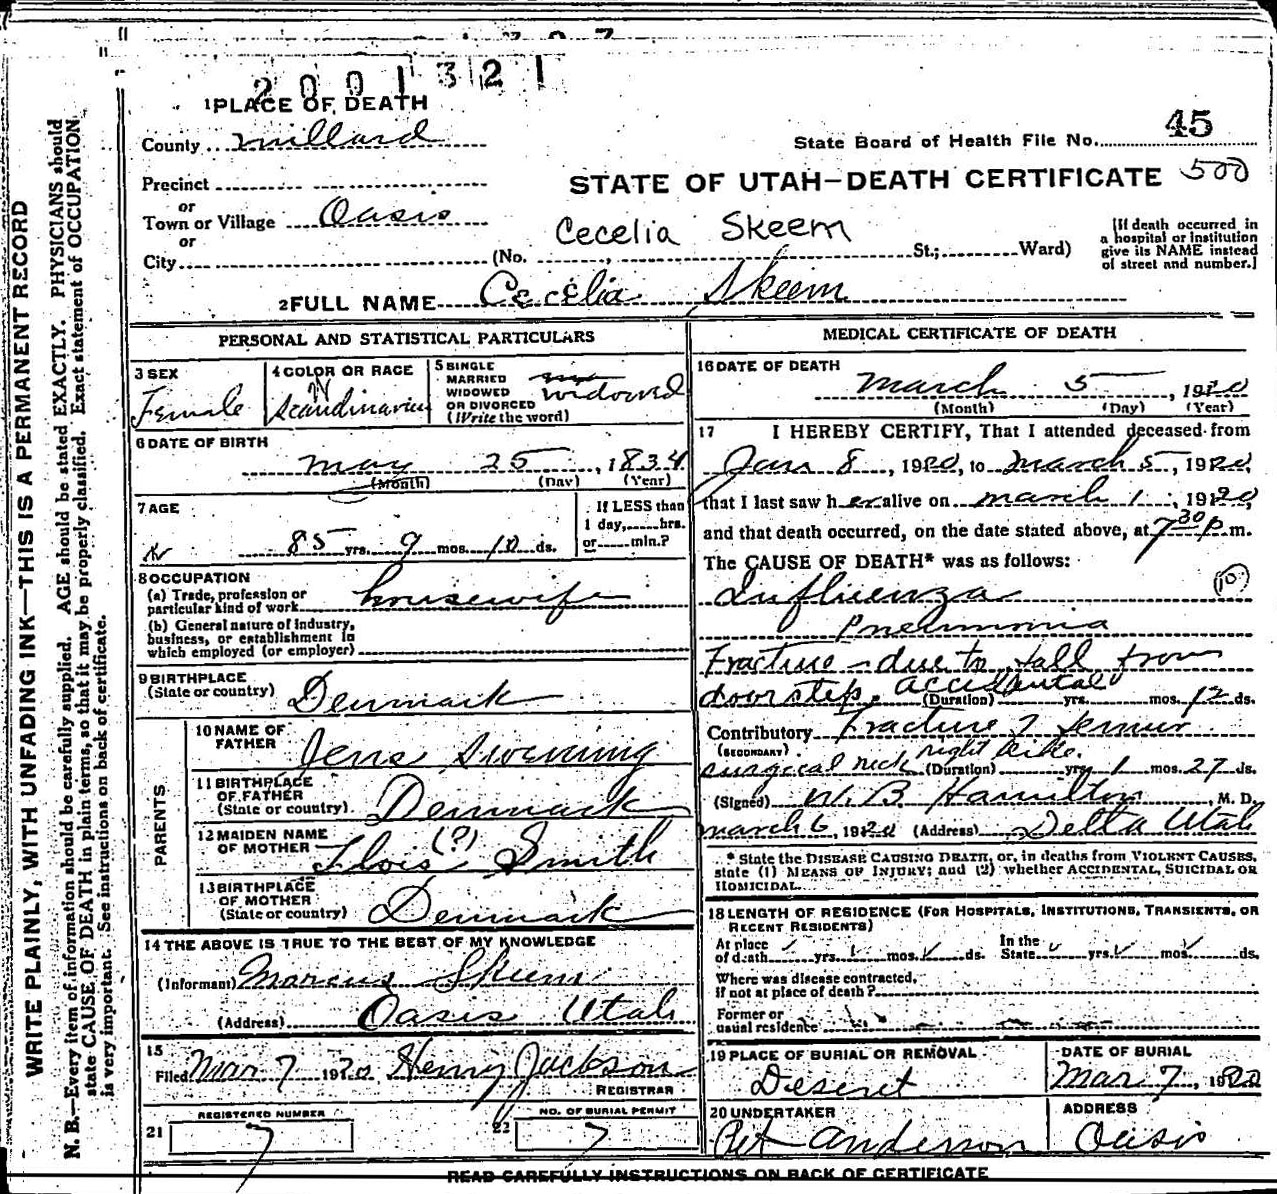 2001321
1 PLACE OF DEATH
County Millard
State Board of Health File No. 45
Precinct
STATE OF UTAH—DEATH CERTIFICATE 500
or
Town or Village Oasis
or
Cecelia Skeem
City (No. St.; Ward)
[If death occurred in
a hospital or institution
give its NAME instead
of street and number.]
2 FULL NAME Cecelia Skeem
WRITE PLAINLY, WITH UNFADING INK—THIS IS A PERMANENT RECORD
N. B.—Every item of information should be carefully supplied. AGE should be stated EXACTLY. PHYSICIANS should
state CAUSE OF DEATH in plain terms, so that it may be properly classified. Exact statement of OCCUPATION
is very important. See instructions on back of certificate.
PERSONAL AND STATISTICAL PARTICULARS
3 SEX
Female
4 COLOR OR RACE
W
Scandinavian
5 SINGLE
MARRIED
WIDOWED
OR DIVORCED
(Write the word)
widowed
6 DATE OF BIRTH
May 25, 1834
(Month) (Day) (Year)
7 AGE
85 yrs. 9 mos. 10 ds.
If LESS than
1 day, hrs.
or min.?
8 OCCUPATION
(a) Trade, profession or
particular kind of work housewife
(b) General nature of industry,
business, or establishment in
which employed (or employer)
9 BIRTHPLACE
(State or country) Denmark
PARENTS
10 NAME OF
FATHER Jens
11 BIRTHPLACE
OF FATHER
(State or country) Denmark
12 MAIDEN NAME
OF MOTHER (?) Smith
13 BIRTHPLACE
OF MOTHER
(State or country) Denmark
14 THE ABOVE IS TRUE TO THE BEST OF MY KNOWLEDGE
(Informant) Marcus Skeem
(Address) Oasis Utah
15
Filed Mar 7 1920 Henry Jackson
REGISTRAR
REGISTERED NUMBER
21 7
NO. OF BURIAL PERMIT
22 7
MEDICAL CERTIFICATE OF DEATH
16 DATE OF DEATH
March 5, 1920
(Month) (Day) (Year)
17 I HEREBY CERTIFY, That I attended deceased from
Jan 8, 1920, to March 5, 1920,
that I last saw her alive on March 1, 1920,
and that death occurred, on the date stated above, at 7 30 p m.
The CAUSE OF DEATH* was as follows:
Influenza (10)
Pneumonia
Fracture - due to fall from
door step. accidental (Duration) yrs. mos. 12 ds.
Contributory Fracture of femur
(SECONDARY)
surgical neck right side. (Duration) yrs. 1 mos. 27 ds.
(Signed) W. B. Hamilton, M. D.
March 6, 1920 (Address) Delta Utah
* State the DISEASE CAUSING DEATH, or, in deaths from VIOLENT CAUSES,
state (1) MEANS OF INJURY; and (2) whether ACCIDENTAL, SUICIDAL OR
HOMICIDAL.
18 LENGTH OF RESIDENCE (FOR HOSPITALS, INSTITUTIONS, TRANSIENTS, OR
RECENT RESIDENTS)
At place
of death yrs. mos. ds.
In the
State yrs. mos. ds.
Where was disease contracted,
if not at place of death?
Former or
usual residence
19 PLACE OF BURIAL OR REMOVAL
Deseret
DATE OF BURIAL
Mar 7, 1920
20 UNDERTAKER
Anderson
ADDRESS
Oasis
READ CAREFULLY INSTRUCTIONS ON BACK OF CERTIFICATE